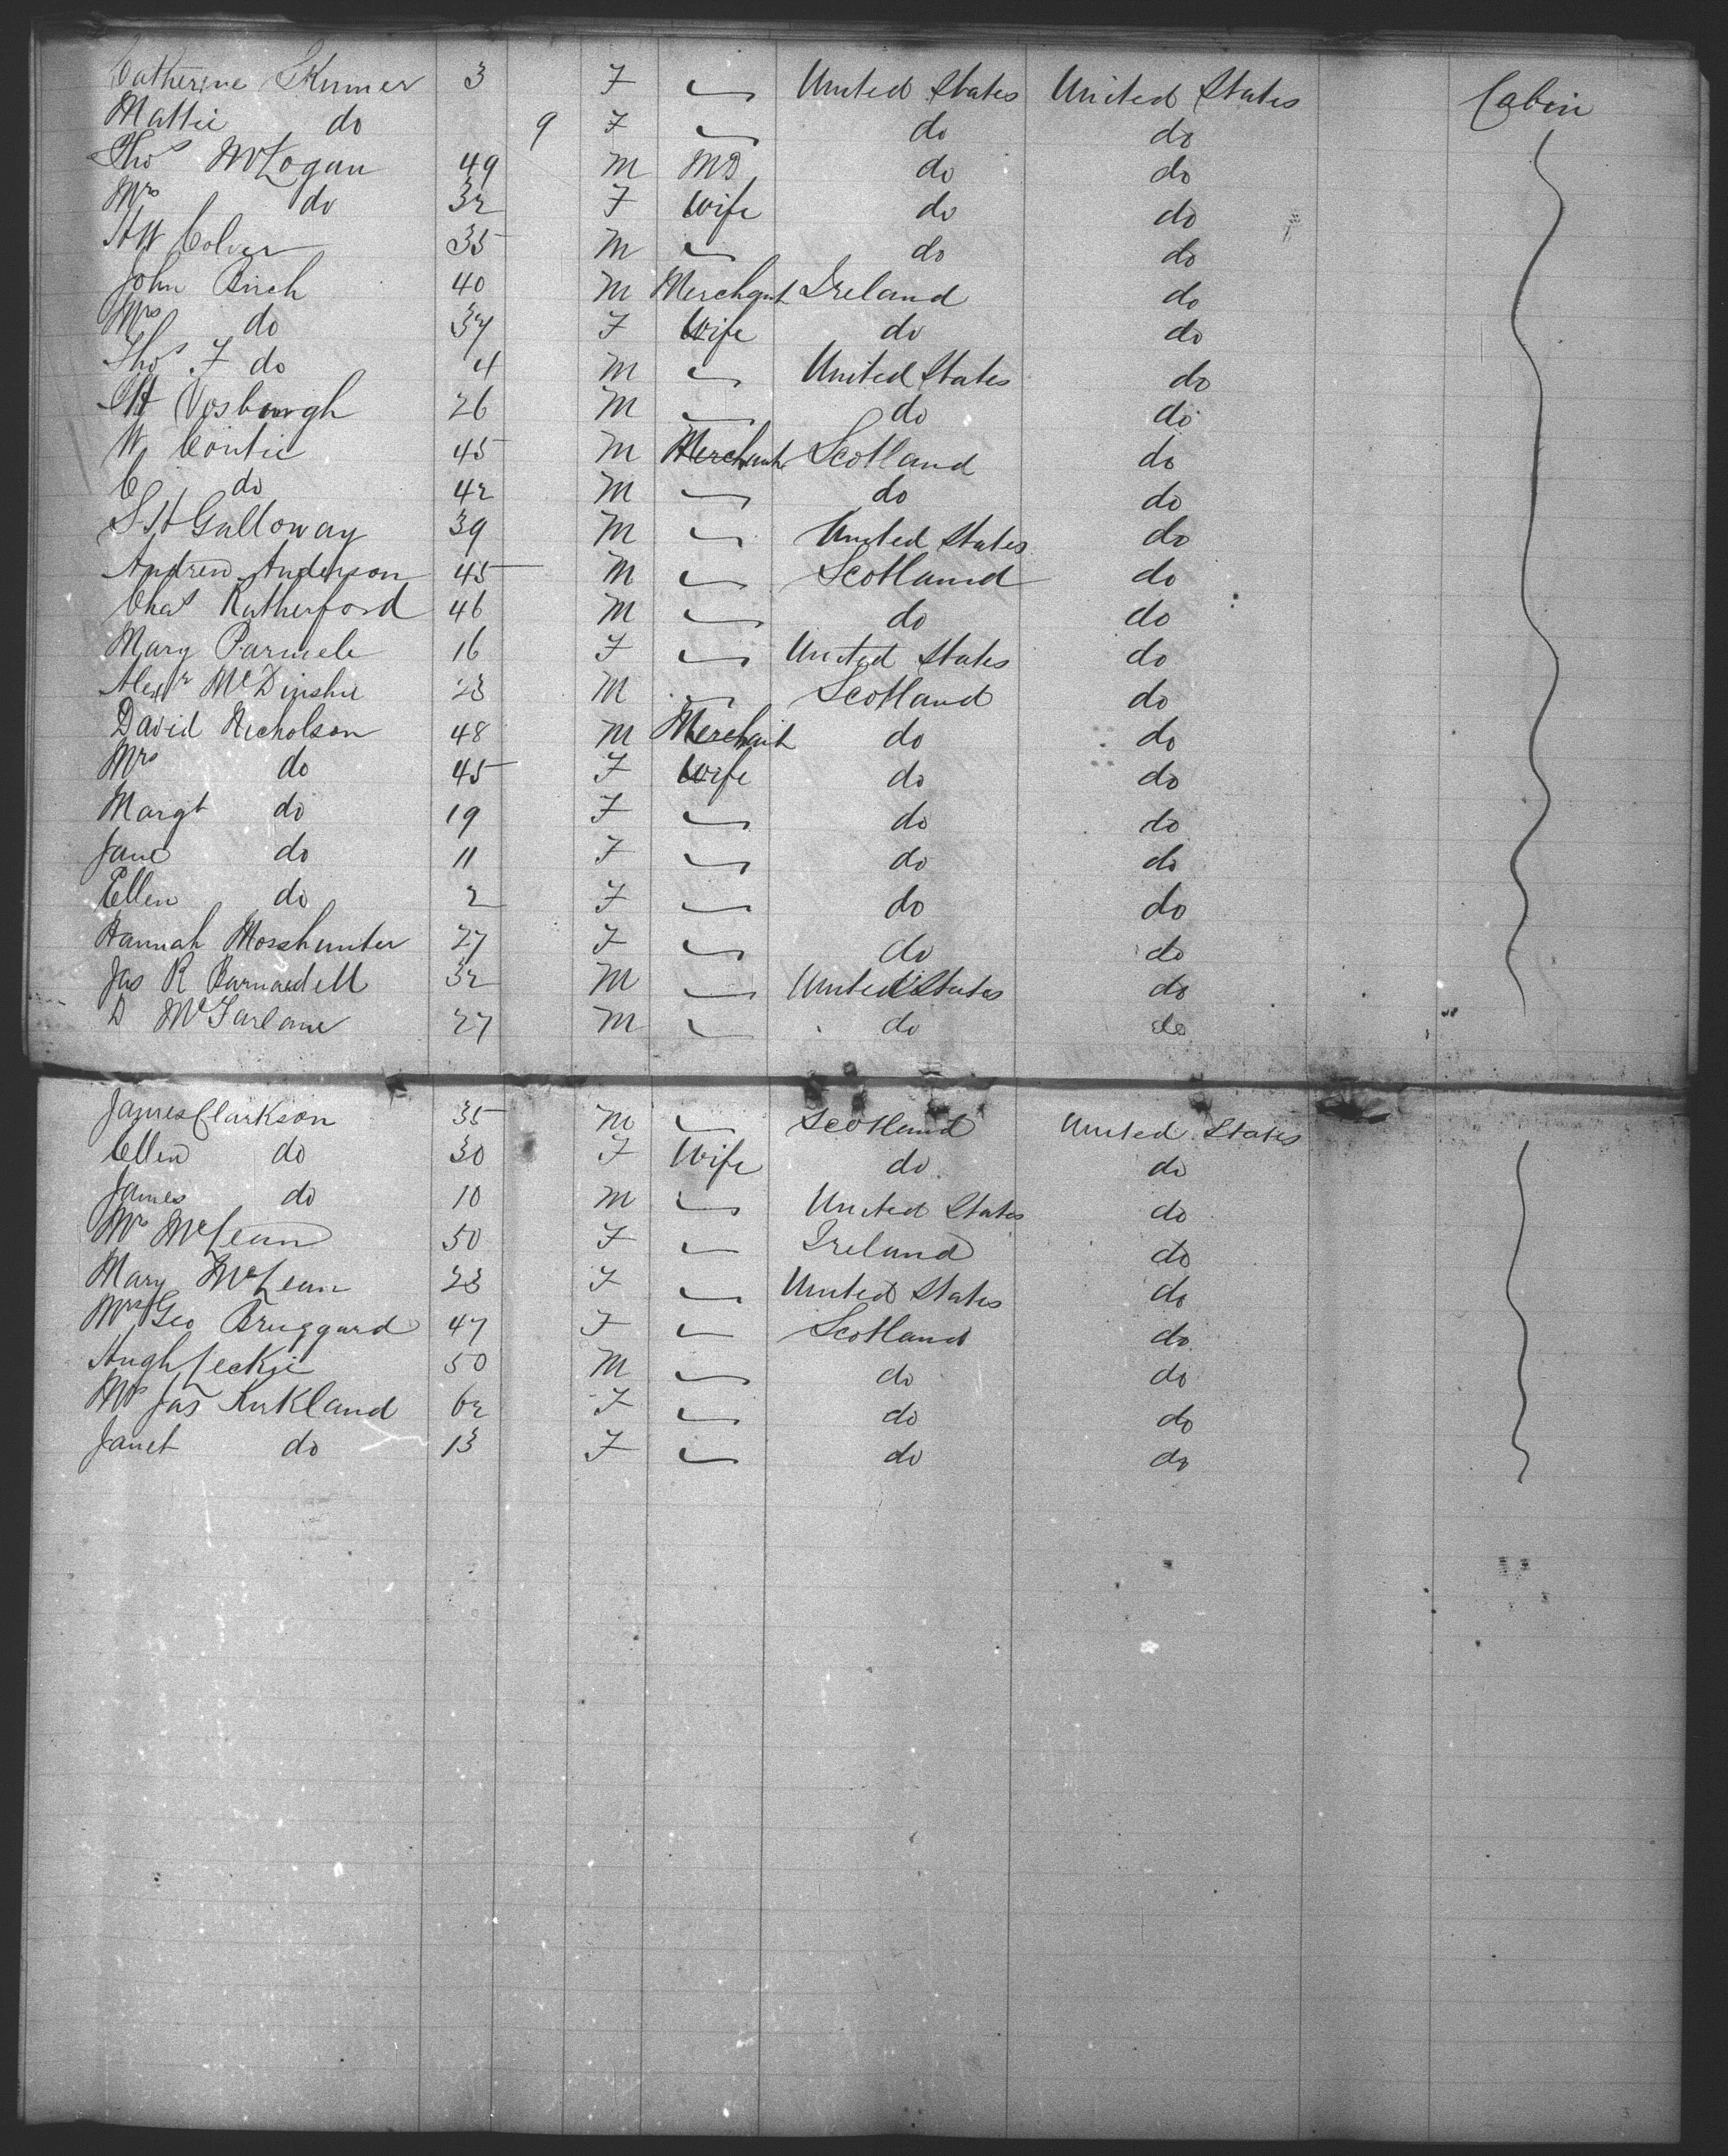 Catherine Skinner 3 F United States United States Cabin
Mattie do 9 F do do
Thos M Logan 49 M MD do do
Mrs do 32 F Wife do do
H W Colver 35 M do do
John Birch 40 M Merchant Ireland do
Mrs do 37 F Wife do do
Thos F do 4 M United States do
Vosburgh 26 M do do
W 45 M Merchant Scotland do
C do 42 M do do
S H Galloway 39 M United States do
Andrew Anderson 45 M Scotland do
Chas Rutherford 46 M do do
Mary Parmele 16 F United States do
Alexr 23 M Scotland do
David Nicholson 48 M Merchant do do
Mrs do 45 F Wife do do
Margt do 19 F do do
Jane do 11 F do do
Ellen do 2 F do do
Hannah Mosshunter 27 F do do
Jas R 32 M United States do
D McFarlane 27 M do do
James Clarkson 35 M Scotland United States
Ellen do 30 F Wife do do
James do 10 M United States do
Mrs McLean 50 F Ireland do
Mary McLean 23 F United States do
Mrs Geo Bruggard 47 F Scotland do
Hugh Leckie 50 M do do
Mrs Jas Kirkland 62 F do do
Janet do 13 F do do